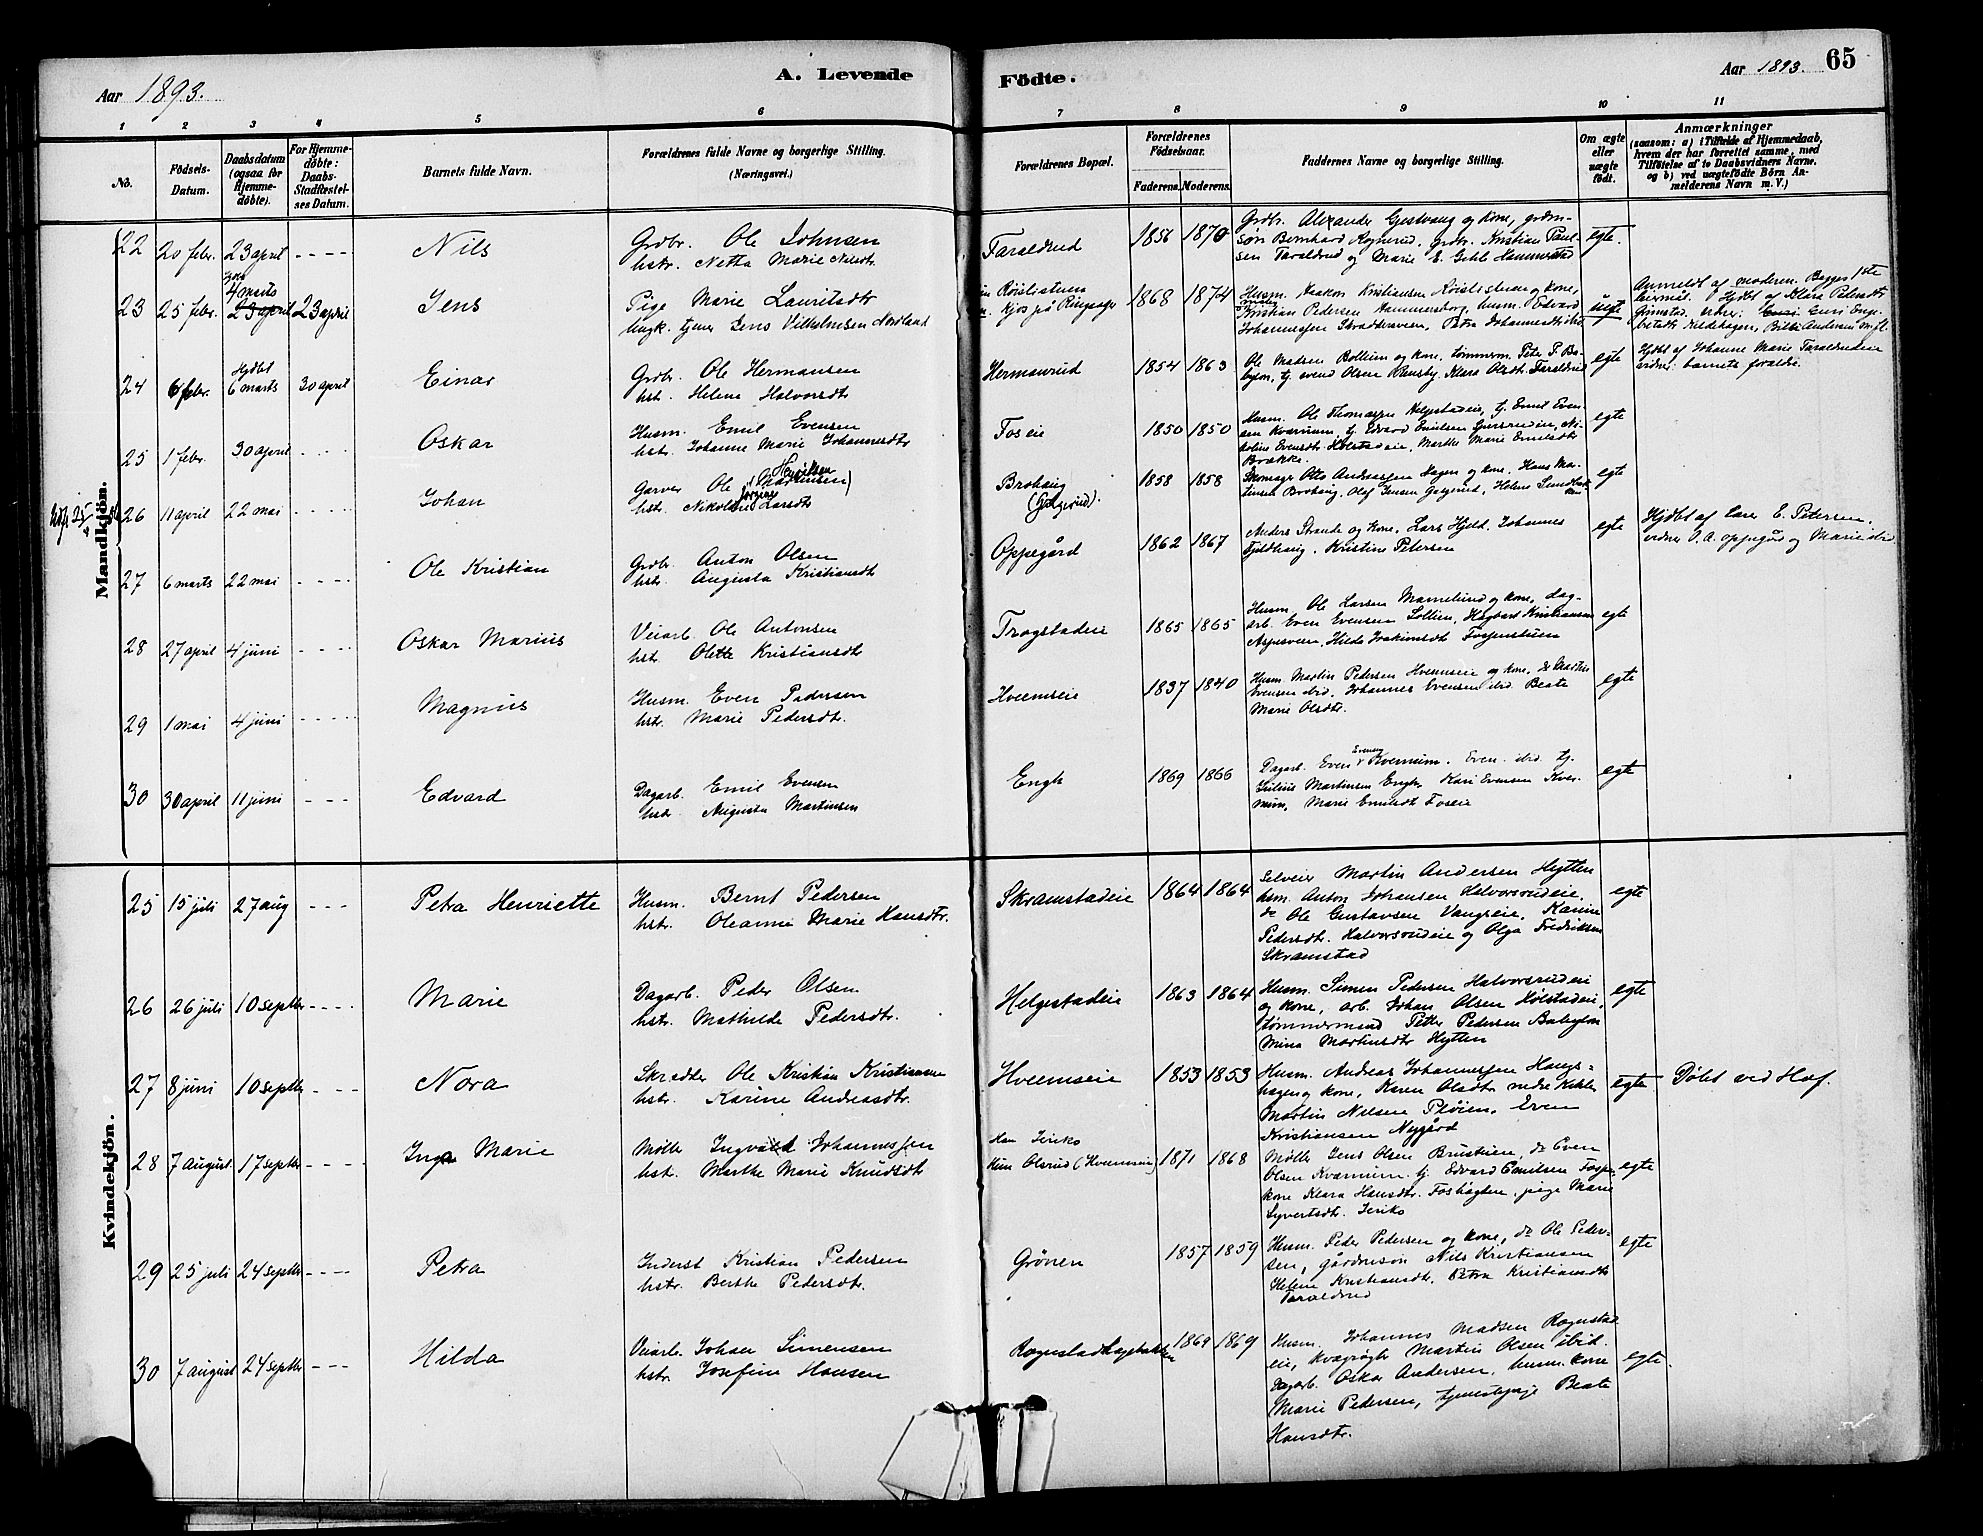 Aar 1893.
A. Levende
Födte.
Aar 1893.
65
1 2 3 4 5 6 7 8 9 10 11
No.
Födsels-Datum.
Daabsdatum (ogsaa for Hjemmedöbte).
For Hjemmedöbte: Daabs-Stadfæstelses Datum.
Barnets fulde Navn.
Forældrenes fulde Navne og borgerlige Stilling. (Næringsvei.)
Forældrenes Bopæl.
Forældrenes Födselsaar.
Faderens. Moderens.
Faddernes Navne og borgerlige Stilling.
Om ægte eller uægte födt.
Anmærkninger (saasom: a) i Tilfælde af Hjemmedaab, hvem der har forrettet samme, med Tilföielse af to Daabsvidners Navne, og b) ved uægtefödte Börn Anmelderens Navn m. V.)
Mandkjön.
22 20 febr. 23 april - - - - Nils
Grdbr. Ole Johnsen
hstr. Netta Marie Nilsdtr.
Taraldrud 1856 1870
Grdbr. Alexander Gjestvang og kone, grdm-
søn Bernhard Rognerud, grdbr. Kristian Paul-
sen Taraldrud og Marie E.
egte.
23 25 febr. 4 marts 23 april 23 april Jens
Pige Marie Lauritsdtr
Ungk. tjener Jens Vilhelmsen Nordland
på Ringsager 1868 1874
Husm. Haakon Kristiansen og kone,
Kristian Pedersen Hammersborg, husm. Edvard
Johannessen Petra Johannesdtr ibid
uegte
Anmeldt af moderen. Begges 1ste
leiermål. Hjdbt af Klara Pedersdtr
Grimstad.
24 6 febr. Hjdbt 6 marts 30 april Einar
Grdbr. Ole Hermansen
hst. Helene Halvorsdtr
Hermanrud 1854 1863
Ole Madsen Bollum og kone, tømmerm. Peter P. Ba-
bylon, tj. svend Olsen Klara Olsdt. Taraldrud
egte
Hjdbt af Johanne Marie Taraldrudeie
vidner: barnets forældre.
25 1 febr. 30 april - - - - Oskar
Husm. Emil Evensen
hst. Johanne Marie Johannesdtr
Foseie 1850 1850
Husm. Ole Thomassen Helgestadeie, tj. Emil Even-
sen Kværnum, tj. Edvard Emilsen
Evensdt Marthe Marie Emilsdt
Brække.
egte
26 11 april 22 mai - - - Johan
Garver Ole Martinsen Henriksen
hst. Larsdt
Brohaug 1858 1858
Skomager Otto Andreassen Hagen og kone, Hans Ma-
tinsen Brohaug, Olaf Jensen Helene
egte
27 6 marts 22 mai - - - - Ole Kristian
Grdb. Anton Olsen
hst. Augusta Kristiansdt
Oppegård 1862 1867
Anders Strande og kone, Lars Hjeld. Johannes
Fjeldhaug. Kristine Petersen
egte
Hjdbt af Lars E. Petersen.
vidner O. A. Oppegård og Marie ibid
28 27 april 4 juni - - - - Oskar Marius
Veiarb. Ole Antonsen
hst. Olette Kristiansdt
Trogstadeie 1865 1865
Husm. Ole Larsen Mamelund og kone, dag-
arb. Even Evensen Lollien, Hagbart Kristiansen
Aspesveen, Hilda Joakimsdt Fossenstuen
egte
29 1 mai 4 juni - - - - Magnus
Husm. Even Pedersen
hst. Marie Pedersdt.
Hveemseie 1837 1840
Husm. Martin Pedersen Hveemseie og kone, do Martin
Evensen ibid, Johannes Evensen ibid. Beate
Marie Olsdt.
egte
30 30 april 11 juni - - - Edvard
Dagarb. Emil Evensen
hst. Augusta Martinsen
Engh 1869 1866
Dagarb. Even Evensen Kvernum. Even ibid. tj.
Julius Martinsen Engh, Kari Evensen Kver-
num, Marie Emilsdt Foseie
egte
Kvindekjön.
25 15 juli 27 aug - - - Petra Henriette
Husm. Bernt Pedersen
hst. Oleanne Marie Hansdtr.
Skramstadeie 1864 1864
Selveier Martin Andersen Hytten
hsm. Anton Johansen Halvorsrudeie,
do Ole Gustavsen Vangseie, Karine
Pedersdt. Halvorsrudeie og Olga Fredriksen
Skramstad
egte
26 26 juli 10 septbr - - - - Marie
Dagarb. Peder Olsen
hst. Mathilde Pedersdtr.
Helgestadeie 1863 1864
Husm. Simen Pedersen Halvorsrudeie
og kone, arb. Johan Olsen Holstadeie,
tømmermand Petter Pedersen Babylon
Mina Martinsdtr Hytten
egte
27 8 juni 10 septbr - - - Nora
Skrædder Ole Kristian Kristiansen
hst. Karine Andreasdtr.
Hveemseie 1853 1853
Husm. Andreas Johannessen Haugs-
hagen og kone, Karen Olsdtr nedre
Martin Nilsen Pløien, Even
Kristiansen Nygård
egte
Döbt ved Hof.
28 7 august. 17 septbr - - - - Inga Marie
Møller Ingvald Johannessen
hst. Marthe Marie Knudsdt
Han Jeriko
Hun Olsrud (Hveemseie) 1871 1868
Møller Jens Olsen Brustien, do Even
Olsen Kværnum. tj. Edvard Emilsen
kone Klara Hansdtr. pige Marie
Syvertsdt. Jeriko
egte
29 25 juli 24 septbr - - - - Petra
Inderst Kristian Pedersen
hst. Berthe Pedersdt.
Grönen 1857 1859
Husm. Peder Pedersen og kone, do Ole Peder-
sen, gårdmsøn Nils Kristiansen
Helene Kristiansdt. Petra Kristiansdt
Taraldrud
egte
30 7 august 24 septbr - - - Hilda
Veiarb. Johan Simensen
hst. Josefine Hansen
Rognstadhagebakken 1869 1869
Husm. Johannes Madsen Rognstad
eie, kvægrögter Martin Olsen ibid.
Dagarb. Oskar Andersen, husm. kone
Marie Pedersen, tjenestepige Beate
Hansdtr.
egte.